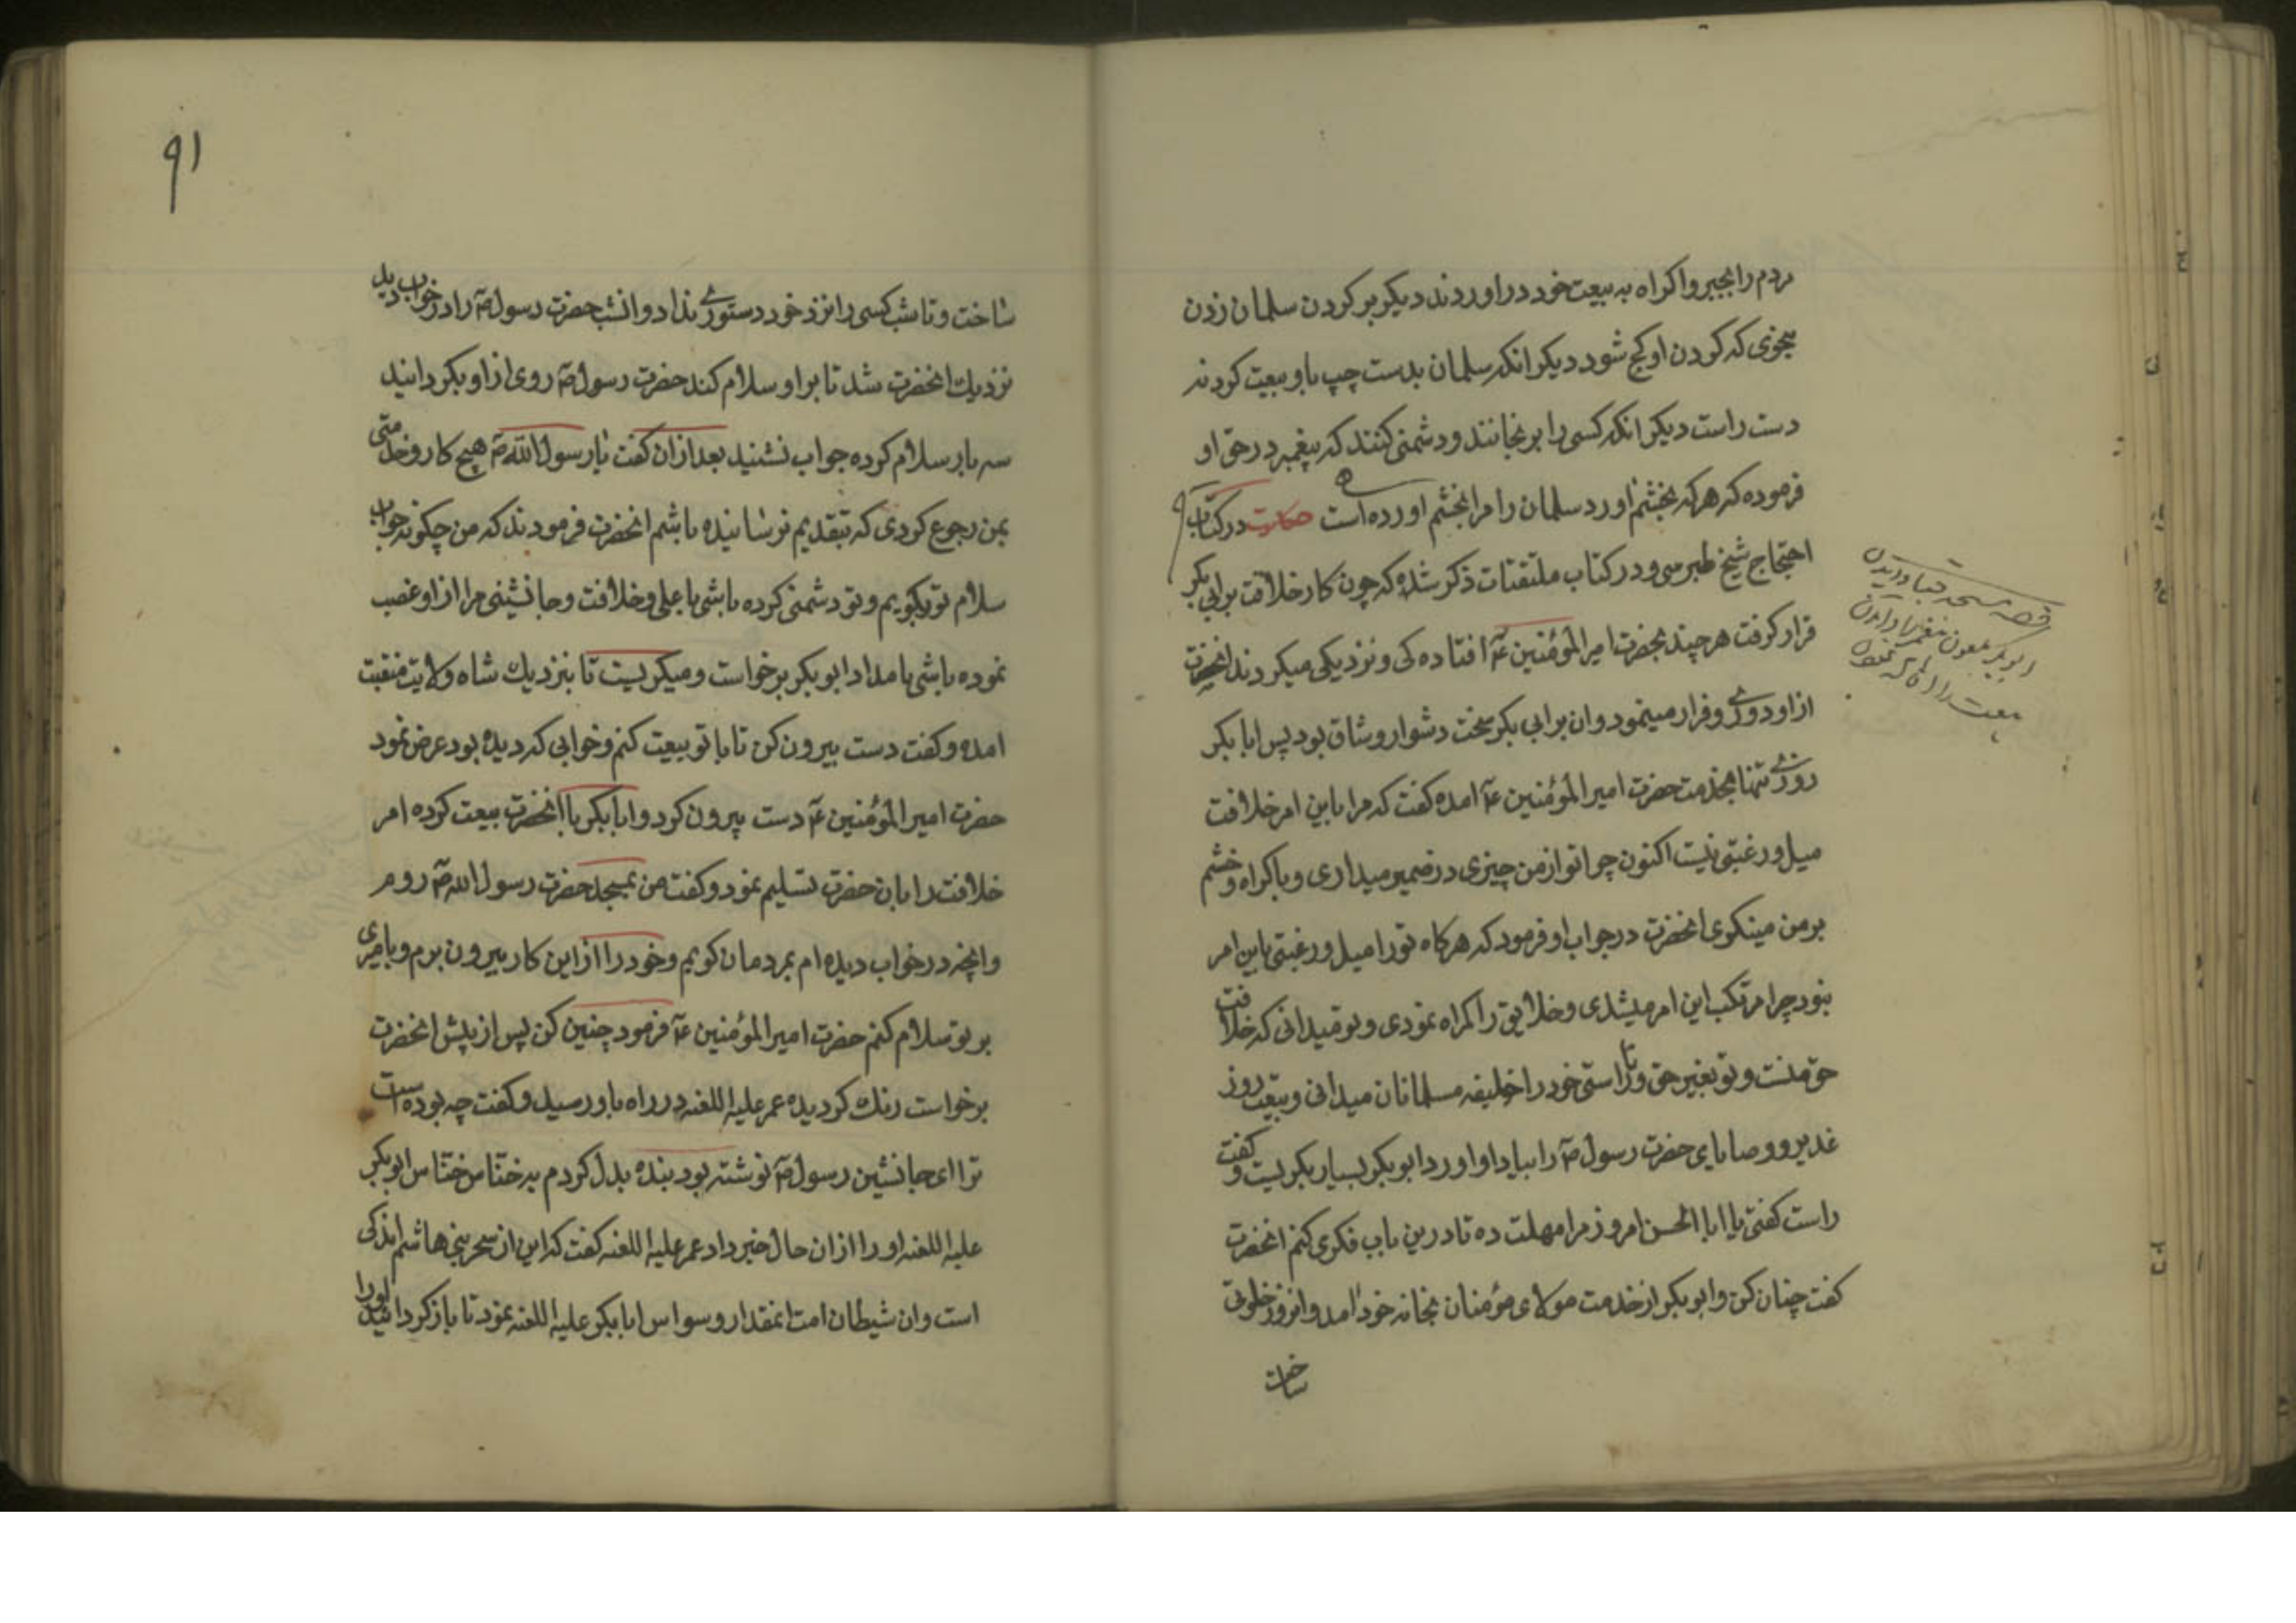 مردم را بجبر واکراه به بیعت خود در اوردند دیکر بر کردن سلمان زدن
بنحوی که کردن او کج شود دیکر انکه سلمان بدست چپ باو بیعت کردند
دست راست دیکر انکه کسی را برنجانند و دشمنی کنند که پیغمبر در حق او
فرموده که هر که بخشم اورد سلمان را مرا بخشم اورده است حکایت در کتاب
احتجاج شیخ طبرسی و در کتاب ملتقتات ذکر شده که چون کار خلافت بر ابی بکر
قرار کرفت هر چند بحضرت امیر المؤمنین ع افتاده کی و نزدیکی میکردند انحضرت
از او دوری و فرار مینمود وان بر ابی بکر سخت دشوار و شاق بود پس ابا بکر
روزی تنها بخدمت حضرت امیر المؤمنین ع امده کفت که مرا باین امر خلافت
میل و رغبتی نیست اکنون چرا تو از من چیزی در ضمیر میداری و باکراه و خشم
بر من مینکری انحضرت در جواب او فرمود که هر کاه تو را میل و رغبتی باین امر
نبود چرا مرتکب این امر میشدی و خلایق را کمراه نمودی و تو میدانی که خلافت
حق منست و تو بغیر حق و ناراستی خود را خلیفه مسلمانان میدانی و بیعت روز
غدیر و وصایای حضرت رسول ص را بیاد او اورد ابو بکر بسیار بکریست و کفت
راست کفتی یا ابا الحسن امروز مرا مهلت ده تا درین باب فکری کنم انحضرت
کفت چنان کن و ابو بکر از خدمت مولای مؤمنان بخانه خود امد و انروز خلوتی
ساخت
قصه مسجد قبا
ابو بکر ملعون
بیعت را
۹۱
ساخت و تا شب کسی را نزد خود دستوری نداد و انشب حضرت رسول ص را در خواب دید
نزدیك انحضرت شد تا بر او سلام کند حضرت رسول ص روی از او بکردانید
سه بار سلام کرده جواب نشنید بعد از ان کفت یا رسول الله ص هیچ کار و خدمتی
بمن رجوع کردی که بتقدیم نرسانیده باشم انحضرت فرمودند که من چکونه جواب
سلام تو بکویم و تو دشمنی کرده باشی با علی و خلافت و جانشینی مرا از او غصب
نموده باشی بامداد ابو بکر برخواست و میکریست تا بنزدیك شاه ولایت منقبت
امده و کفت دست بیرون کن تا با تو بیعت کنم و خوابی که دیده بود عرض نمود
حضرت امیر المؤمنین ع دست بیرون کرد و ابا بکر با انحضرت بیعت کرده امر
خلافت را بان حضرت تسلیم نمود و کفت من بمسجد حضرت رسول الله ص روم
وانچه در خواب دیده ام بمردمان کویم و خود را از این کار بیرون برم و بامیری
بر تو سلام کنم حضرت امیر المؤمنین ع فرمود چنین کن پس از پیش انحضرت
برخواست رنك کردیده عمر علیه اللعنه در راه باو رسید و کفت چه بوده است
ترا ای جانشین رسول ص نوشته بود بنده بدل کردم به خناس خناس ابو بکر
علیه اللعنه او را از ان حال خبر داد عمر علیه اللعنه کفت که این از سحر بنی هاشم اندکی
است وان شیطان امت انمقدار وسواس ابا بکر علیه اللعنه نمود تا باز کردانید اورا